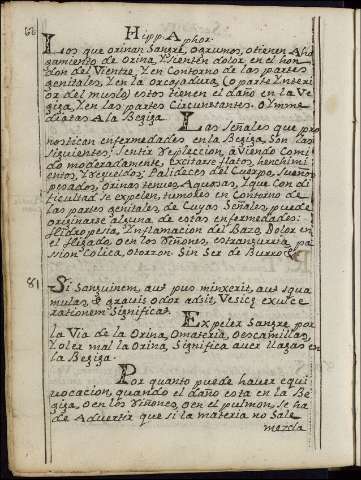 Hipp. Aphor.
Los que orinan Sangre, o grumos, o tienen Aho
gamiento de Orina, Y sienten dolor, en el hon
don del Vientre, Y en Contorno de las partes
genitales, Y en la Orcajadura, (o parte Interi
or del muslo) estos tienen el daño en la Ve
giga, Y en las partes Circunstantes. O Ynme
diatas A la Begiga.
Las Señales que pro
nostican enfermedades en la Begiga Son las
Siguientes; Sentir Repleccion, aViendo Comi
do moderadamente, Excitarse flatos, henchimi
entos, Y regueldos; Palideces del Cuerpo, sueños
pesados, orinas tenues, Aquosas, Y que con di
ficultad se expelen, tumores en Contorno de
las partes genitales, de Cuyas Señales, puede
originarse alguna de estas enfermedades:
Hidropesia, Ynflamacion del Bazo, Dolor en
el Higado, o en los Riñones, estrangurria, pa
sion Colica, Sin Ser de
81
Si Sanguinem, aut pus minxerit, aut squa
mulas, & gravis odor adsit, Vesicę exulce
rationem Significat.
Expeler Sangre por
la Via de la Orina, O materia, O escamillas,
Y oler mal la Orina, Significa aver llagas en
la Begiga.
Por quanto puede haver equi
vocacion, quando el daño esta en la Be
giga, o en los Riñones, o en el pulmon, se ha
de Advertir que si la materia no Sale
mezcla